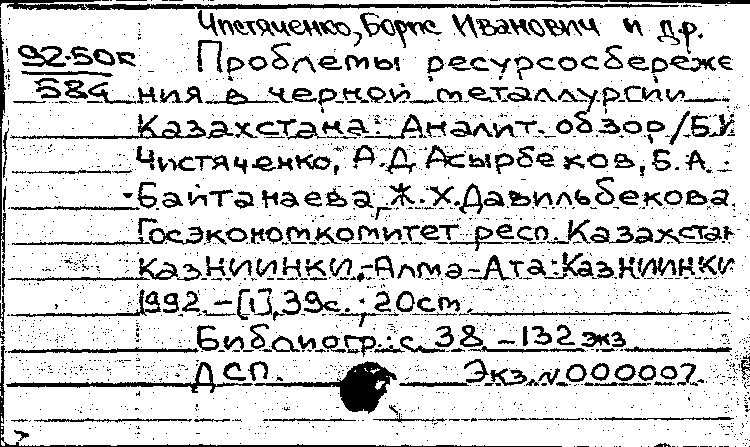 Чистяченко, Борис Иванович и др.
92-50к
584
Проблемы ресурсосбереже
ния в черной металлургии
Казахстана: Аналит. обзор/Б.И
Чистяченко, А.Д. Асырбеков, Б.А.
Байтанаева, Ж.Х. Давильбекова.
Госэкономкомитет респ. Казахстан
КазНИИНКИ.-Алма-Ата: КазНИИНКИ
1992.-[1],39с.; 20см.
Библиогр.: с. 38.-132 экз
ДСП. Экз.N000007.